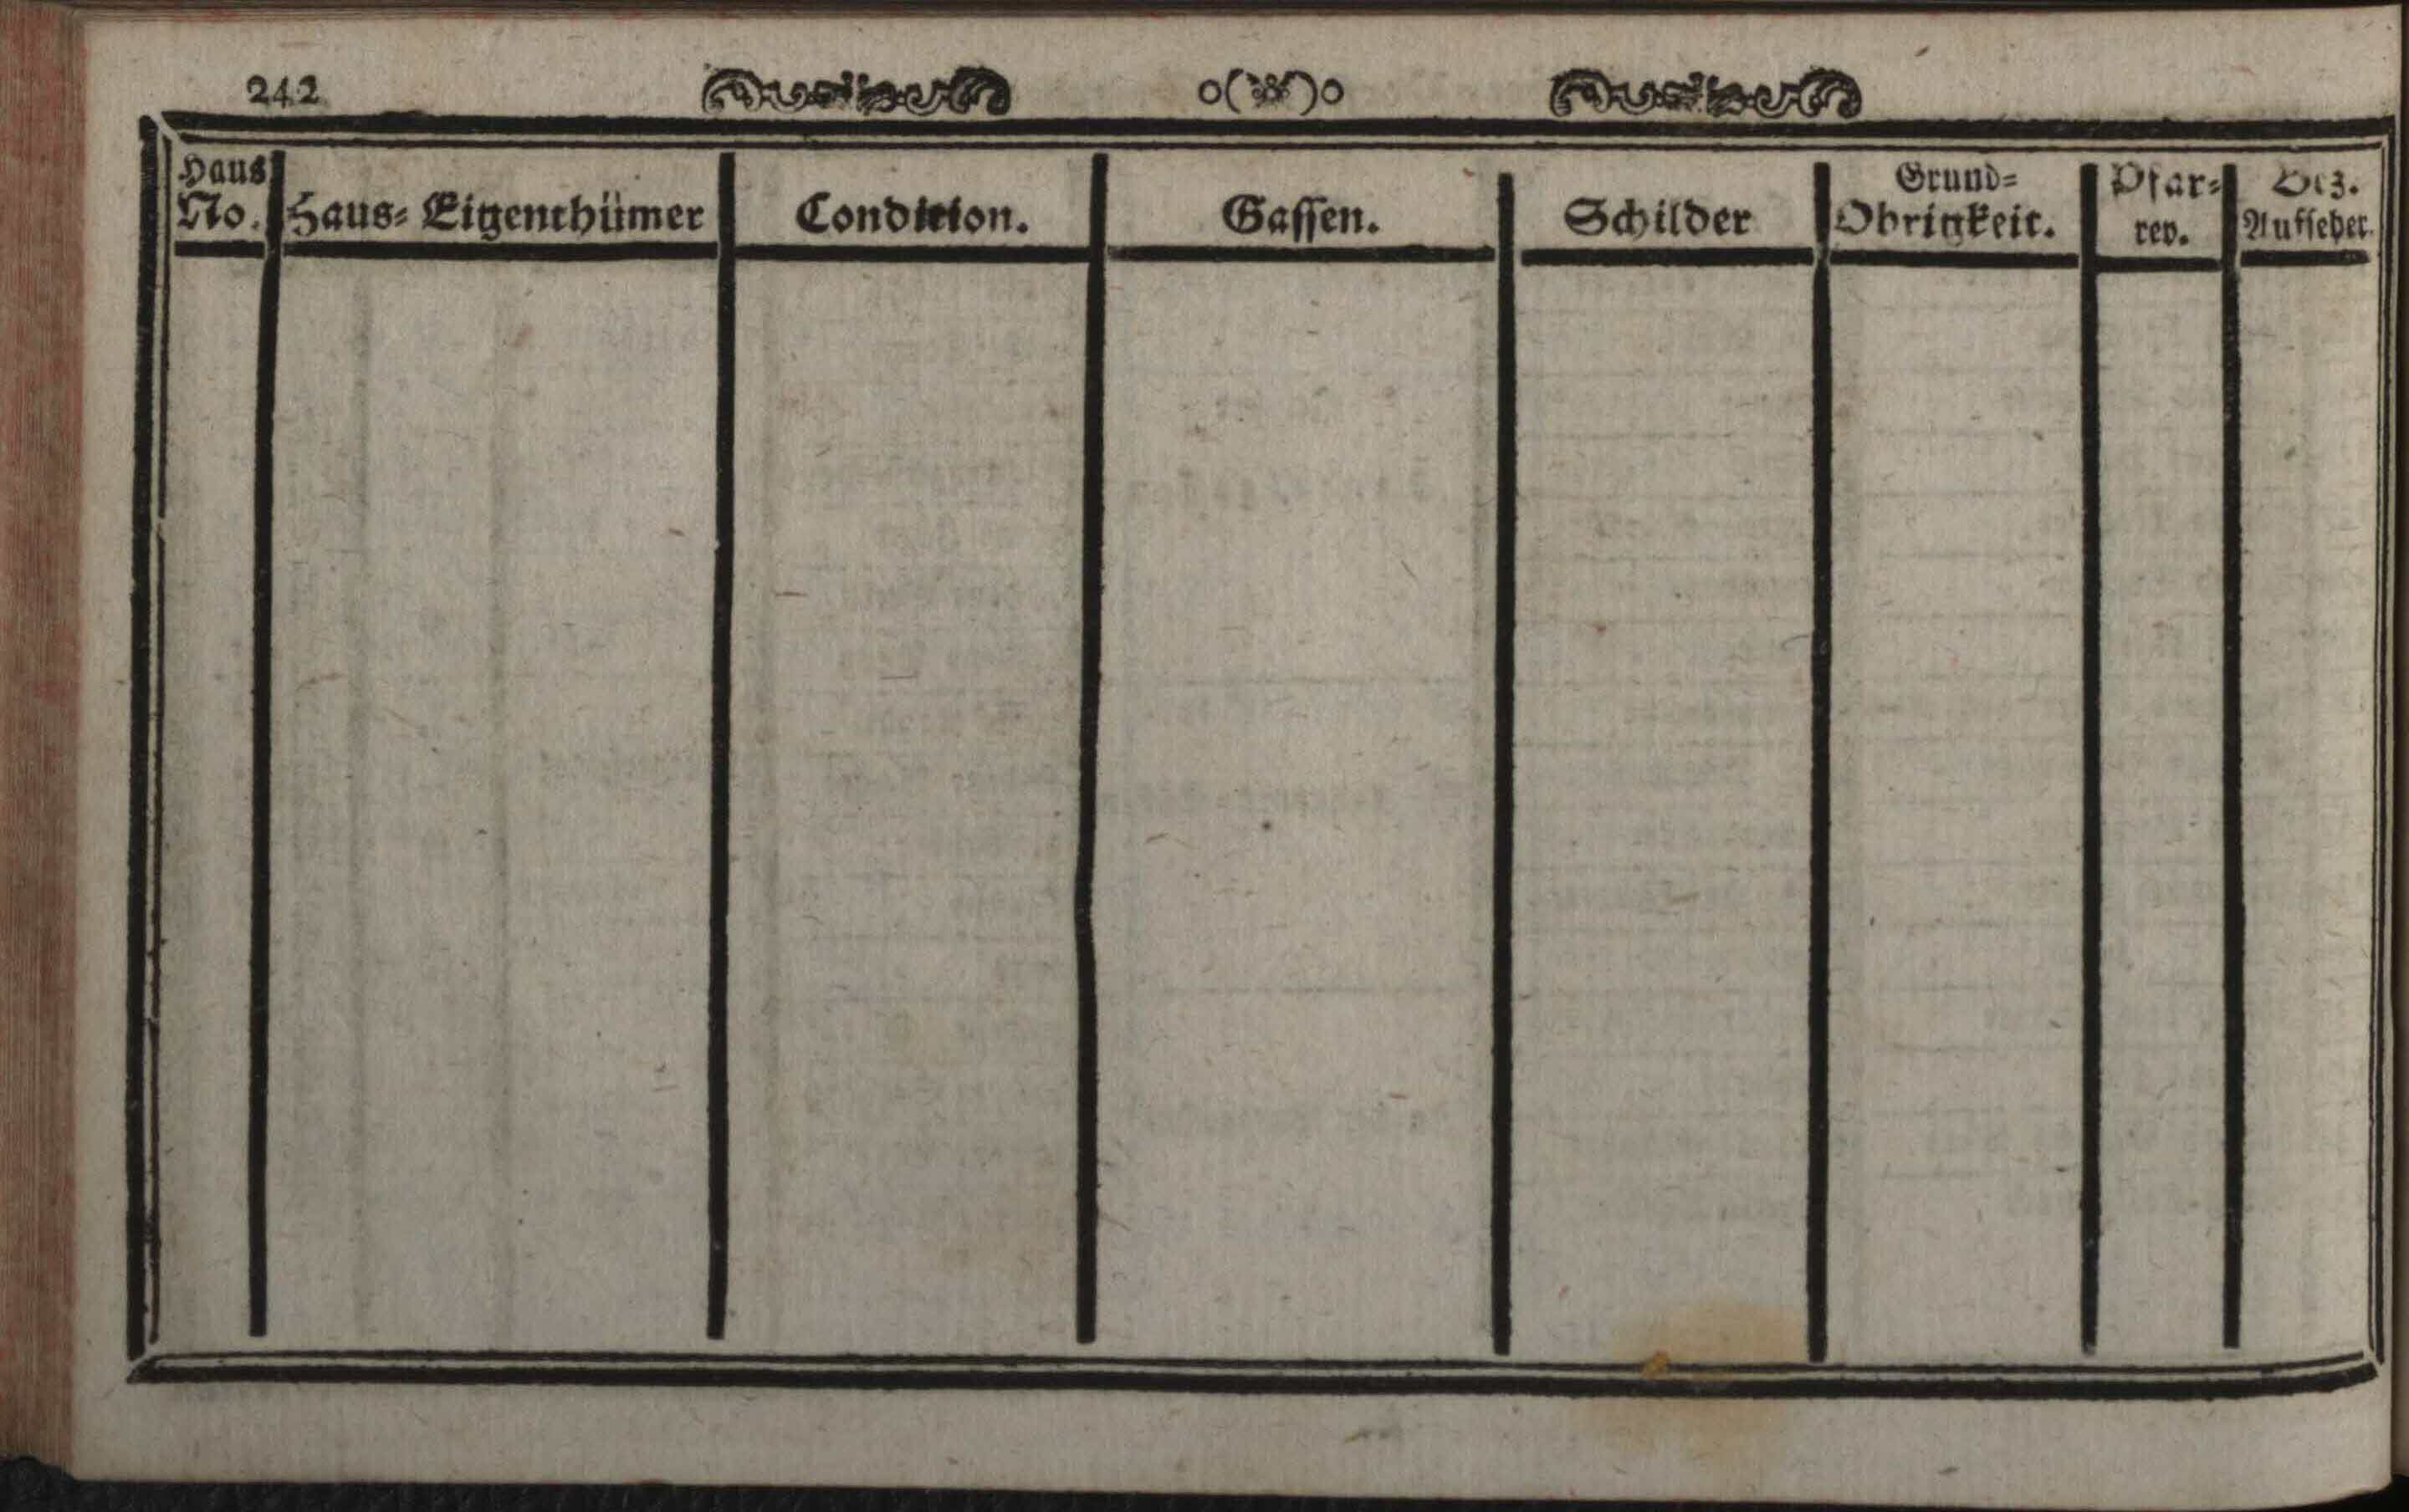 242
o( )o
Haus No. Haus-Eigenthümer Condition. Gassen. Schilder Grund-Obrigkeit. Pfar-rey. Bez. Aufseher.